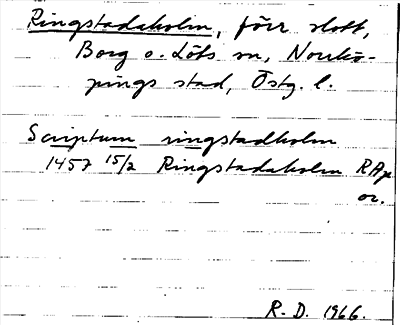 Ringstadaholm, förr slott,
Borg o. Löts sn, Norrkö-
pings stad, Östg. l.
Scriptum ringstadholm
1457 15/2 Ringstadaholm RAp
or.
R. D. 1966.